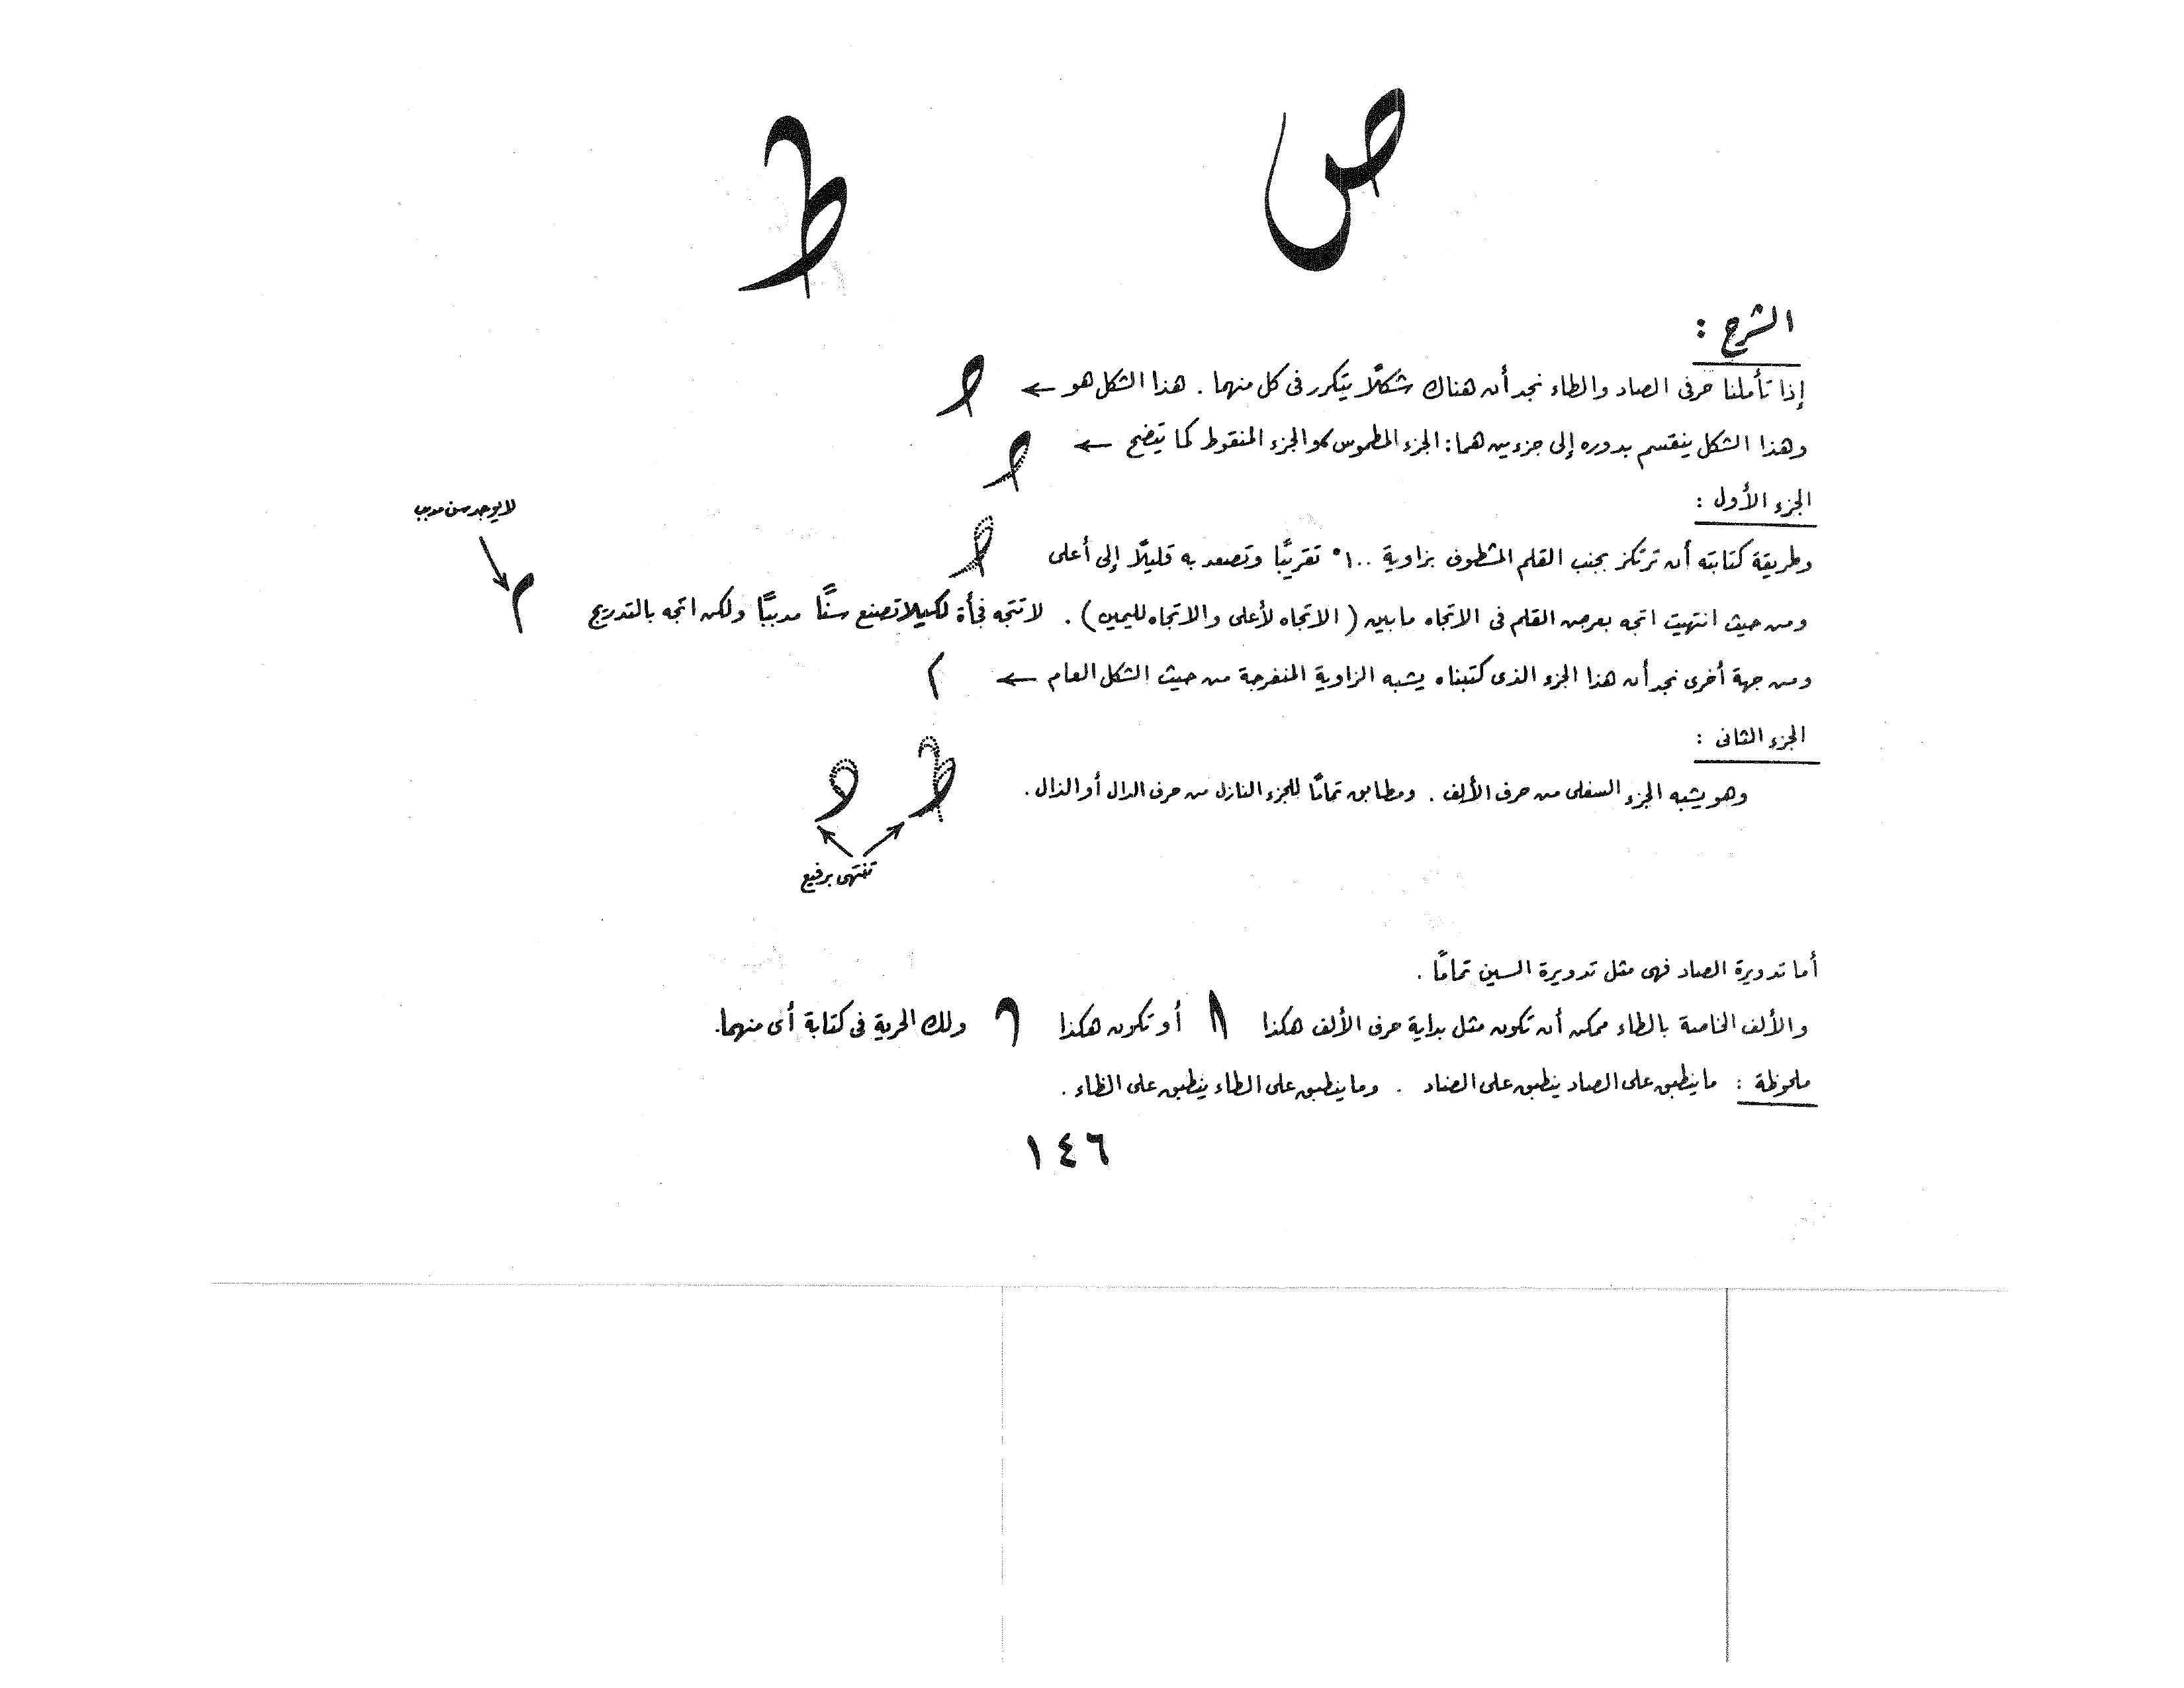 ص ط
الشرح :
إذا تأملنا حرفى الصاد والطاء نجد أن هناك شكلًا يتكرر فى كل منهما . هذا الشكل هو ←
وهذا الشكل ينقسم بدوره إلى جزءين هما : الجزء المطموس والجزء المنقوط كما يتضح ←
الجزء الأول :
لا يوجد سن مدبب
وطريقة كتابته أن ترتكز بجنب القلم المشطوف بزاوية ١٠٠° تقريبًا وتصعد به قليلًا إلى أعلى
ومن حيث انتهيت اتجه بعرض القلم فى الاتجاه ما بين ( الاتجاه لأعلى والاتجاه لليمين ) . لا تتجه فجأة لكيلا تصنع سنًّا مدببًا ولكن اتجه بالتدريج
ومن جهة أخرى نجد أن هذا الجزء الذى كتبناه يشبه الزاوية المنفرجة من حيث الشكل العام ←
الجزء الثانى :
وهو يشبه الجزء السفلى من حرف الألف . ومطابق تمامًا للجزء النازل من حرف الدال أو الذال .
تنتهى برفيع
أما تدويرة الصاد فهى مثل تدويرة السين تمامًا .
والألف الخاصة بالطاء ممكن أن تكون مثل بداية حرف الألف هكذا أو تكون هكذا ولك الحرية فى كتابة أى منهما.
ملحوظة : ما ينطبق على الصاد ينطبق على الضاد . وما ينطبق على الطاء ينطبق على الظاء .
١٤٦